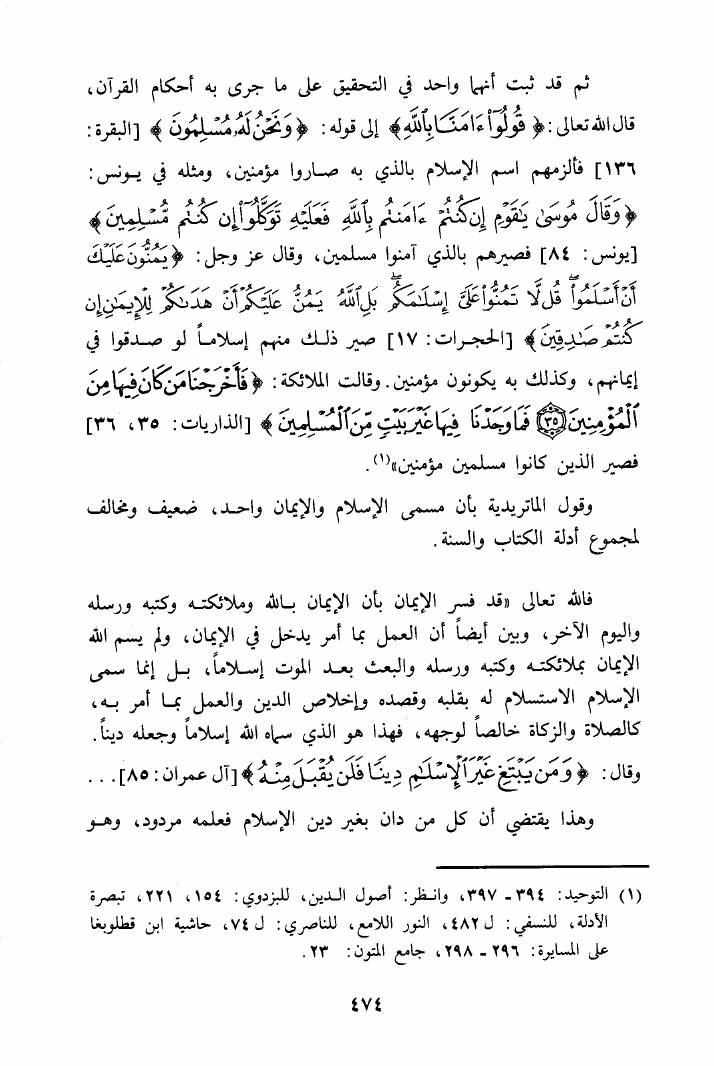 ثم قد ثبت أنهما واحد في التحقيق على ما جرى به أحكام القرآن،
قال الله تعالى: ﴿ قُولُوٓا۟ ءَامَنَّا بِٱللَّهِ ﴾ إلى قوله: ﴿ وَنَحْنُ لَهُۥ مُسْلِمُونَ ﴾ [البقرة:
١٣٦] فألزمهم اسم الإسلام بالذي به صاروا مؤمنين، ومثله في يونس:
﴿ وَقَالَ مُوسَىٰ يَٰقَوْمِ إِن كُنتُمْ ءَامَنتُم بِٱللَّهِ فَعَلَيْهِ تَوَكَّلُوٓا۟ إِن كُنتُم مُّسْلِمِينَ ﴾
[يونس: ٨٤] فصيرهم بالذي آمنوا مسلمين، وقال عز وجل: ﴿ يَمُنُّونَ عَلَيْكَ
أَنْ أَسْلَمُوا۟ ۖ قُل لَّا تَمُنُّوا۟ عَلَىَّ إِسْلَٰمَكُم ۖ بَلِ ٱللَّهُ يَمُنُّ عَلَيْكُمْ أَنْ هَدَىٰكُمْ لِلْإِيمَٰنِ إِن
كُنتُمْ صَٰدِقِينَ ﴾ [الحجرات: ١٧] صير ذلك منهم إسلاماً لو صدقوا في
إيمانهم، وكذلك به يكونون مؤمنين. وقالت الملائكة: ﴿ فَأَخْرَجْنَا مَن كَانَ فِيهَا مِنَ
ٱلْمُؤْمِنِينَ ﴿٣٥﴾ فَمَا وَجَدْنَا فِيهَا غَيْرَ بَيْتٍ مِّنَ ٱلْمُسْلِمِينَ ﴾ [الذاريات: ٣٥، ٣٦]
فصير الذين كانوا مسلمين مؤمنين»(١).
وقول الماتريدية بأن مسمى الإسلام والإيمان واحد، ضعيف ومخالف
لمجموع أدلة الكتاب والسنة.
فالله تعالى «قد فسر الإيمان بأن الإيمان بالله وملائكته وكتبه ورسله
واليوم الآخر، وبين أيضاً أن العمل بما أمر يدخل في الإيمان، ولم يسم الله
الإيمان بملائكته وكتبه ورسله والبعث بعد الموت إسلاماً، بل إنما سمى
الإسلام الاستسلام له بقلبه وقصده وإخلاص الدين والعمل بما أمر به،
كالصلاة والزكاة خالصاً لوجهه، فهذا هو الذي سماه الله إسلاماً وجعله ديناً.
وقال: ﴿ وَمَن يَبْتَغِ غَيْرَ ٱلْإِسْلَٰمِ دِينًا فَلَن يُقْبَلَ مِنْهُ ﴾ [آل عمران: ٨٥]...
وهذا يقتضي أن كل من دان بغير دين الإسلام فعلمه مردود، وهو
(١) التوحيد: ٣٩٤ - ٣٩٧، وانظر: أصول الدين، للبزدوي: ١٥٤، ٢٢١، تبصرة
الأدلة، للنسفي: ل ٤٨٢، النور اللامع، للناصري: ل ٧٤، حاشية ابن قطلوبغا
على المسايرة: ٢٩٦ - ٢٩٨، جامع المتون: ٢٣.
٤٧٤